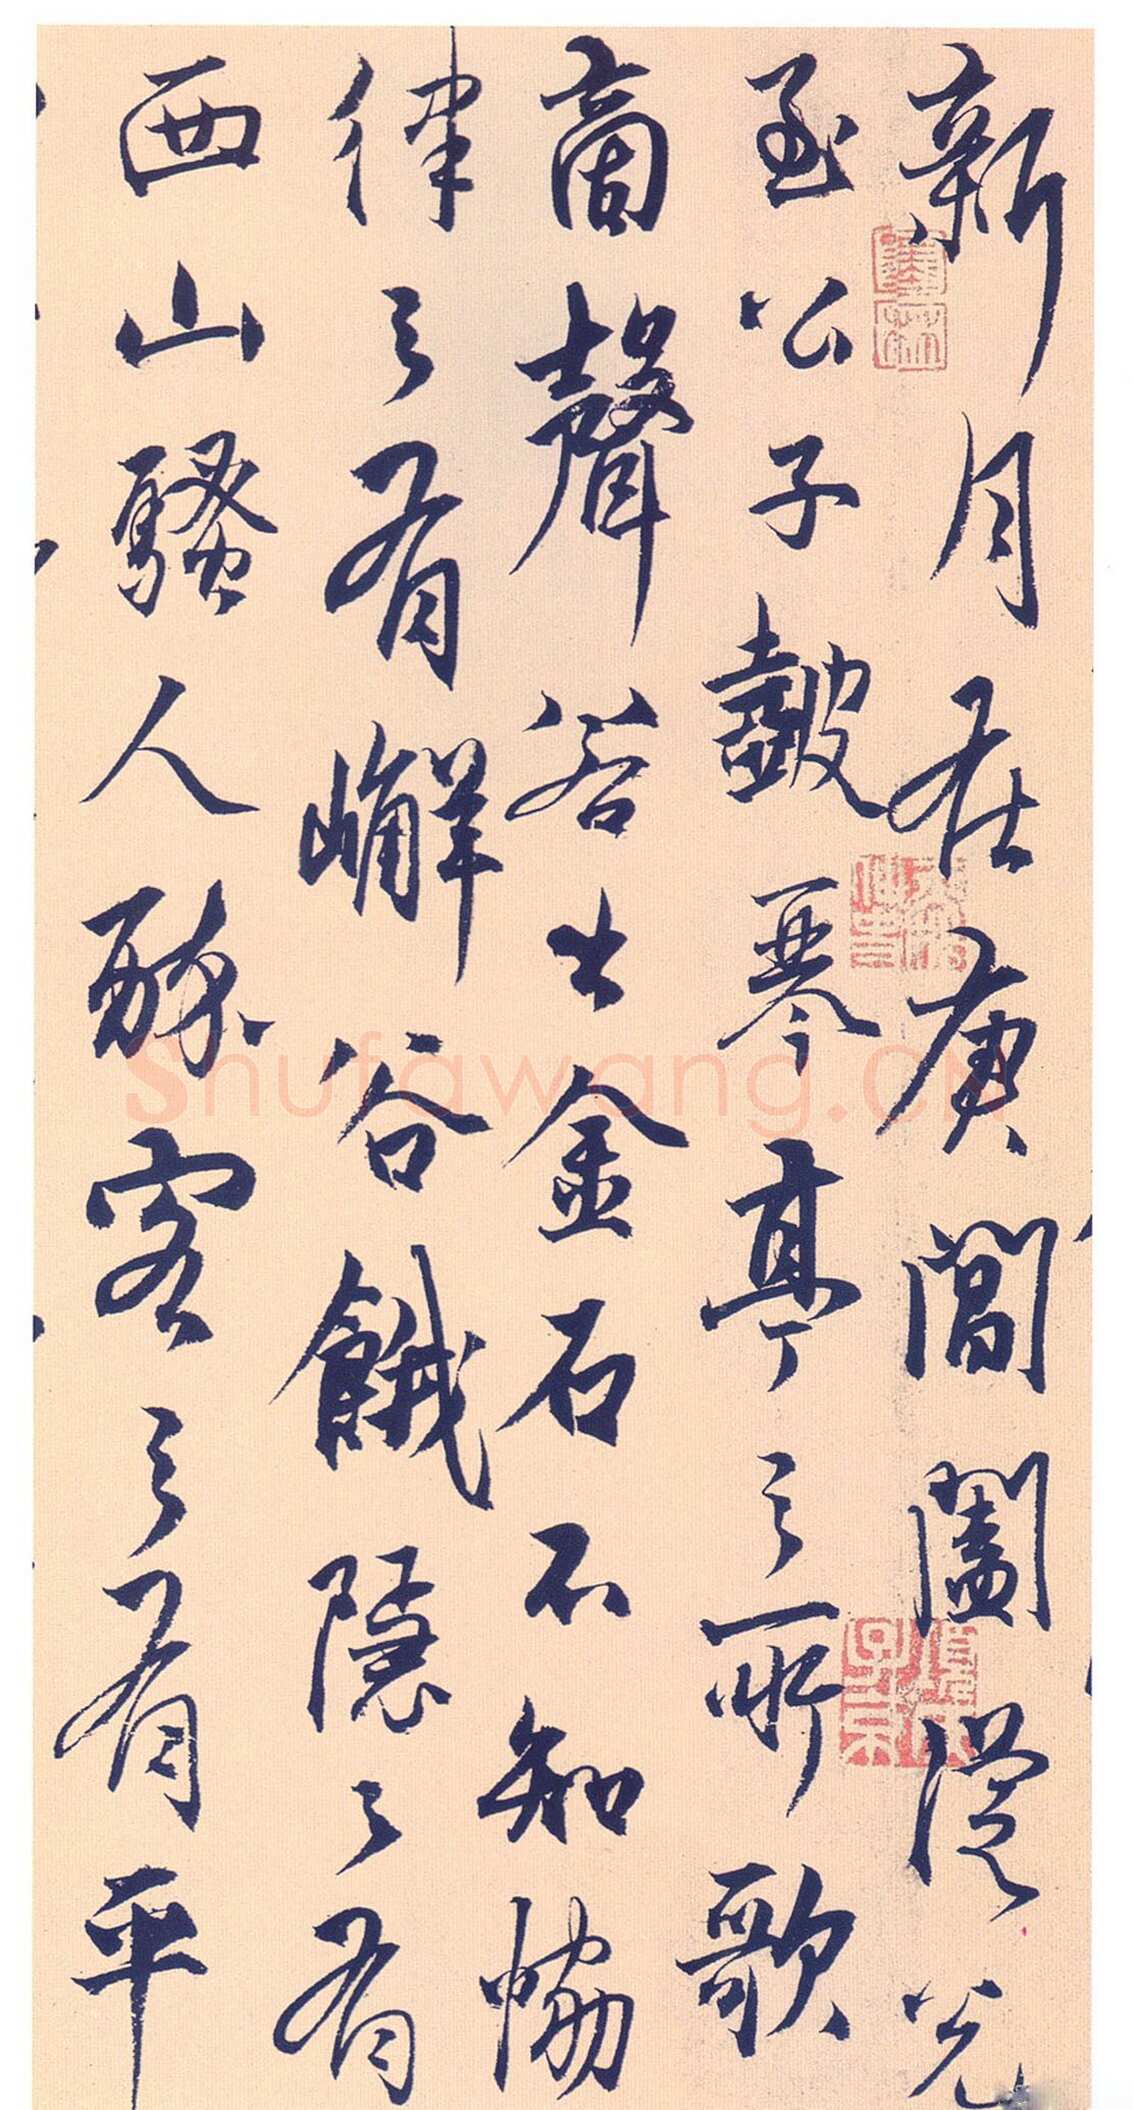 新月在庚閶闔從兌
至公子鼓琴亭之所歌
商聲若出金石不知協
律之有嶰谷餓隱之有
西山騷人醉客之有平
Shufawang.CN